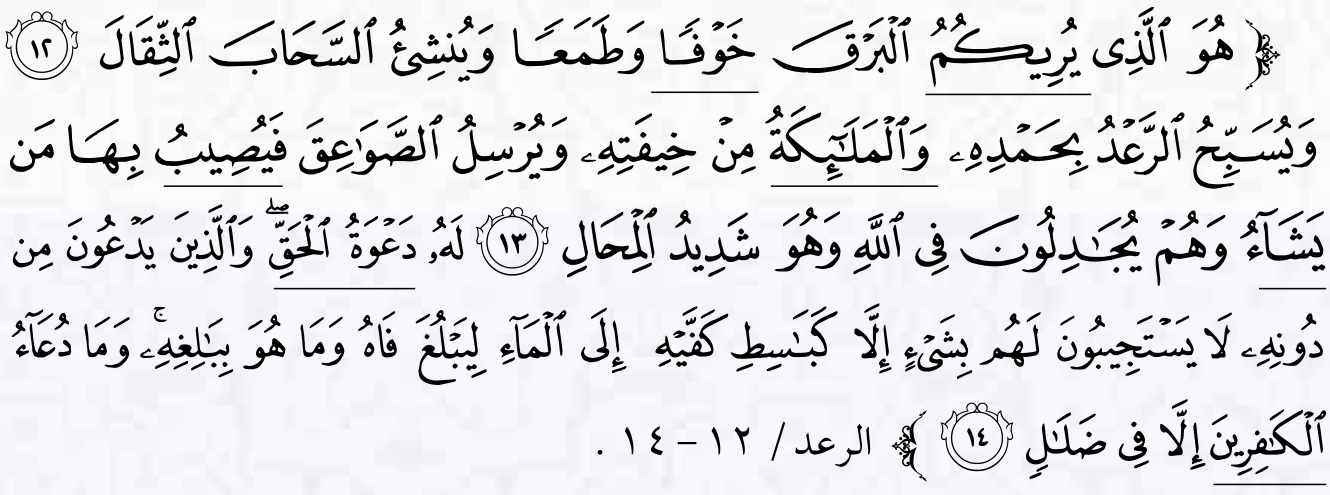 ﴿ هُوَ ٱلَّذِى يُرِيكُمُ ٱلْبَرْقَ خَوْفًا وَطَمَعًا وَيُنشِئُ ٱلسَّحَابَ ٱلثِّقَالَ ١٢
وَيُسَبِّحُ ٱلرَّعْدُ بِحَمْدِهِۦ وَٱلْمَلَـٰٓئِكَةُ مِنْ خِيفَتِهِۦ وَيُرْسِلُ ٱلصَّوَٰعِقَ فَيُصِيبُ بِهَا مَن
يَشَآءُ وَهُمْ يُجَـٰدِلُونَ فِى ٱللَّهِ وَهُوَ شَدِيدُ ٱلْمِحَالِ ١٣ لَهُۥ دَعْوَةُ ٱلْحَقِّ ۖ وَٱلَّذِينَ يَدْعُونَ مِن
دُونِهِۦ لَا يَسْتَجِيبُونَ لَهُم بِشَىْءٍ إِلَّا كَبَـٰسِطِ كَفَّيْهِ إِلَى ٱلْمَآءِ لِيَبْلُغَ فَاهُ وَمَا هُوَ بِبَـٰلِغِهِۦ ۚ وَمَا دُعَآءُ
ٱلْكَـٰفِرِينَ إِلَّا فِى ضَلَـٰلٍ ١٤ ﴾ الرعد / ١٢ – ١٤ .